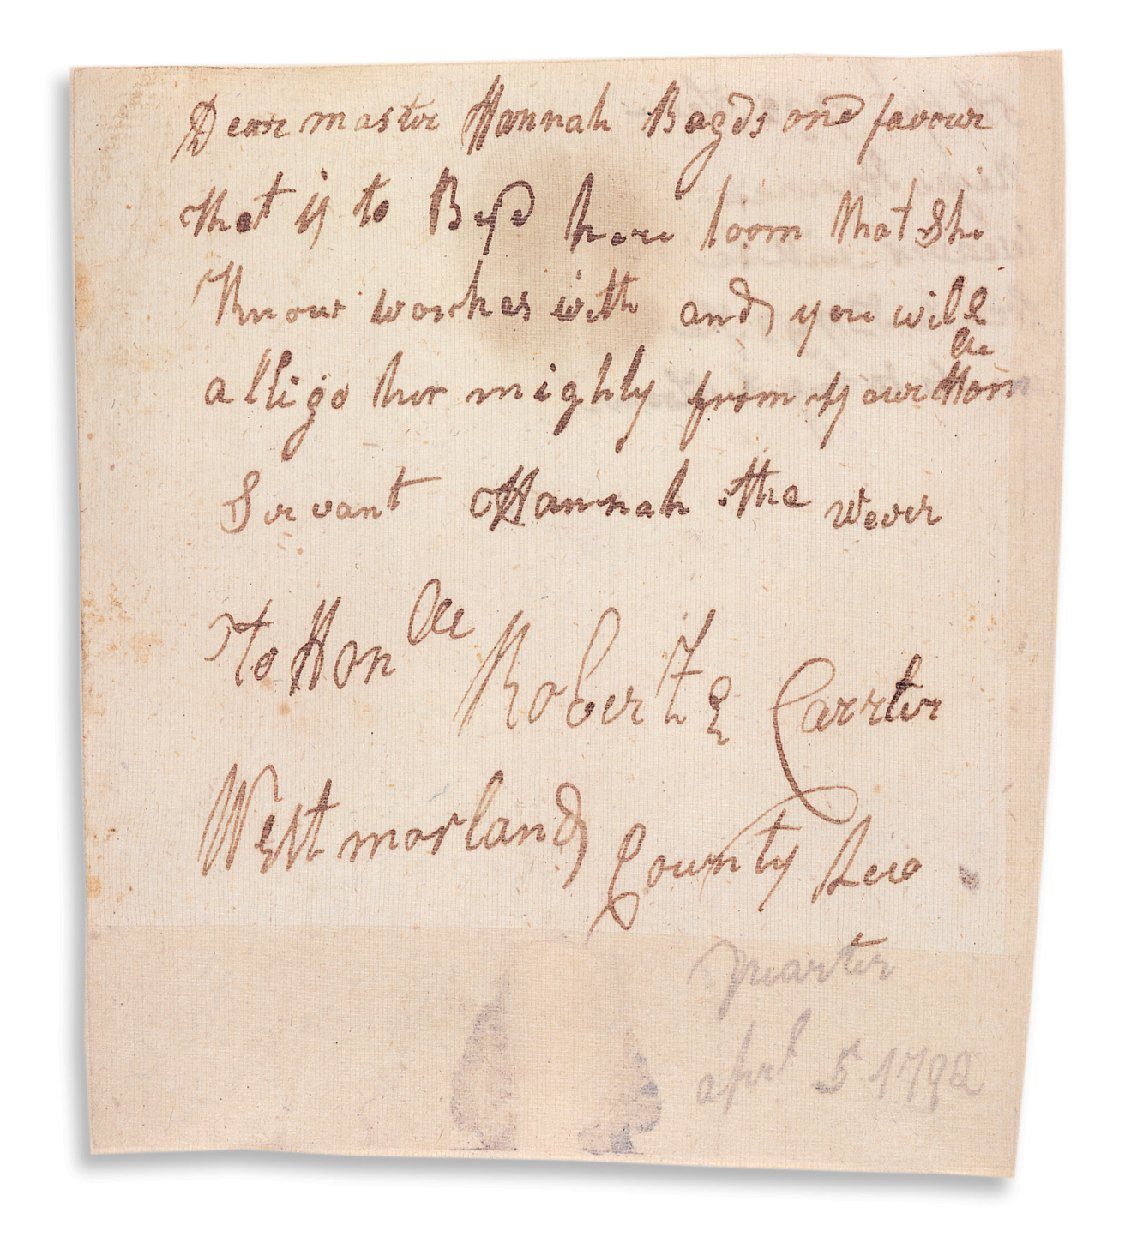 Dear master Hannah Bagds one favour
that is to Bye here loom that She
know workes with and you will
alligo her mighly from your Hon
ble
Servant Hannah the wever
To Hon ble Robert E Carrter
Westmorland County Leo
Quarter
aprl 5 1792